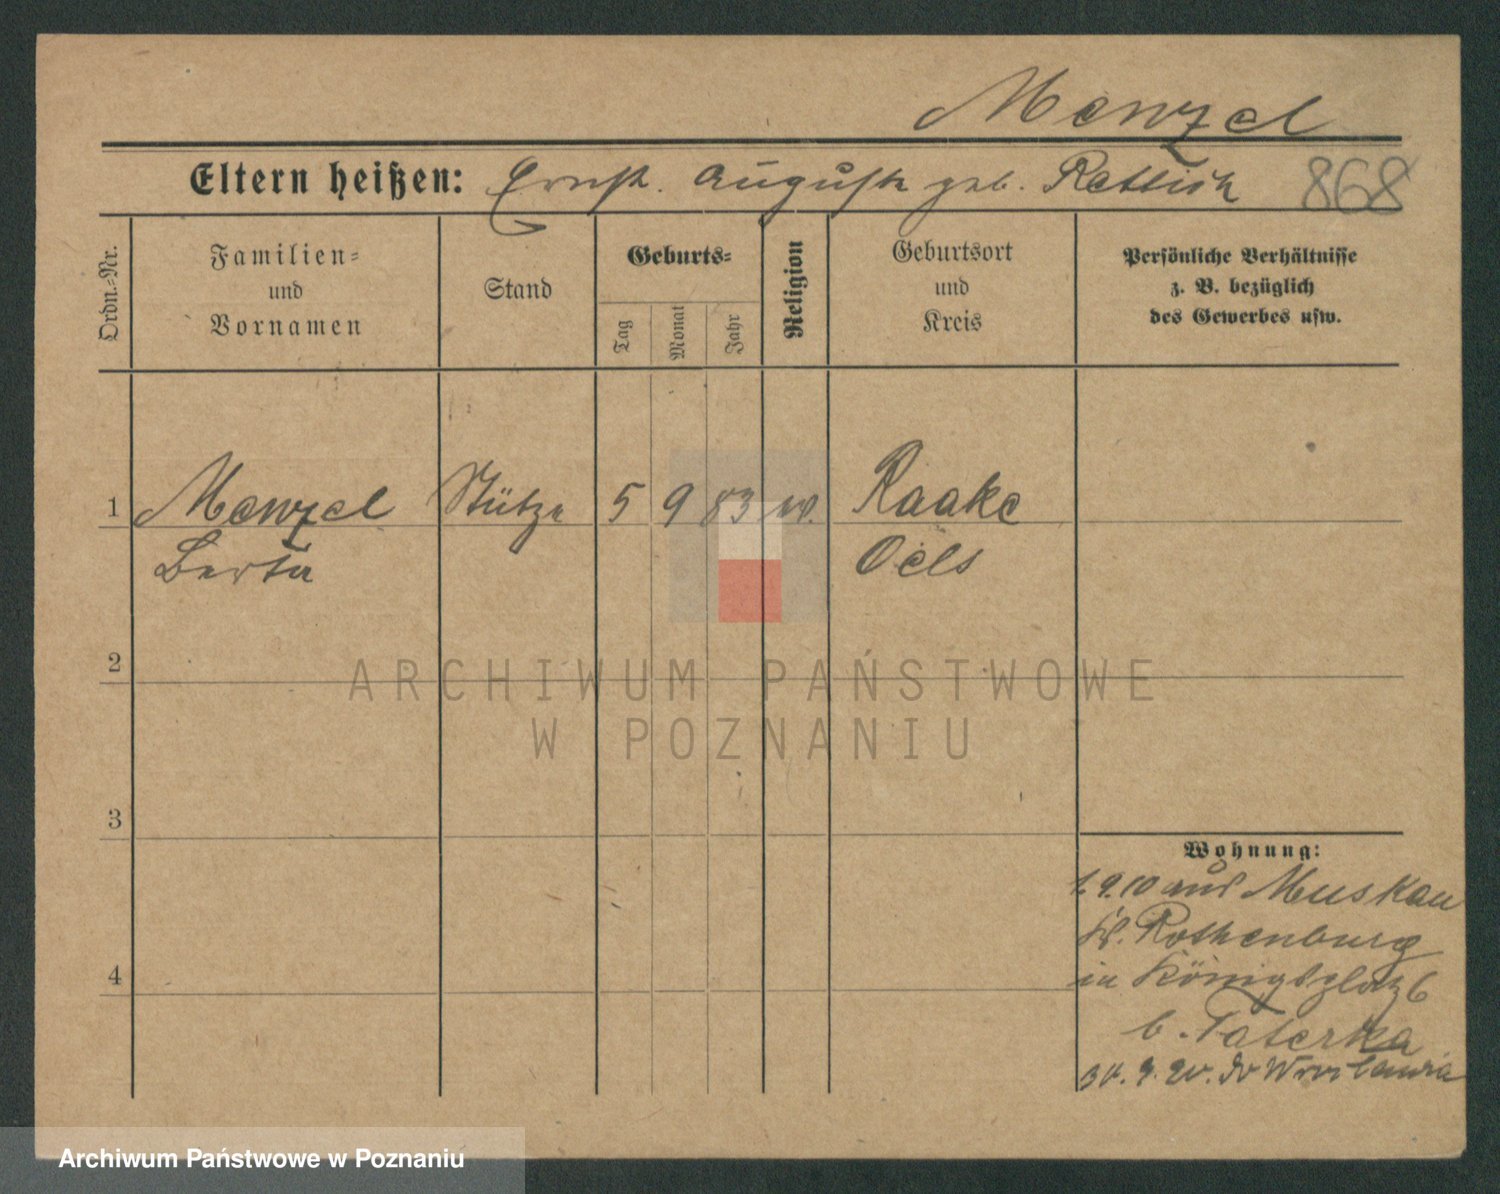 Menzel
Eltern heißen: Ernst. Auguste geb. Rettich 868
Ordn.-Nr.
Familien-
und
Vornamen
Stand
Geburts-
Tag
Monat
Jahr
Religion
Geburtsort
und
Kreis
Persönliche Verhältnisse
z. B. bezüglich
des Gewerbes usw.
1 Menzel Stütze 5 9 83 Raake
Berta Oels
2
3
4
Wohnung:
1.9.10 aus Muskau
Kr. Rothenburg
in Königsplatz 6
b. Taterka
30. 9. 20. do Wrocławia
ARCHIWUM PAŃSTWOWE
W POZNANIU
Archiwum Państwowe w Poznaniu